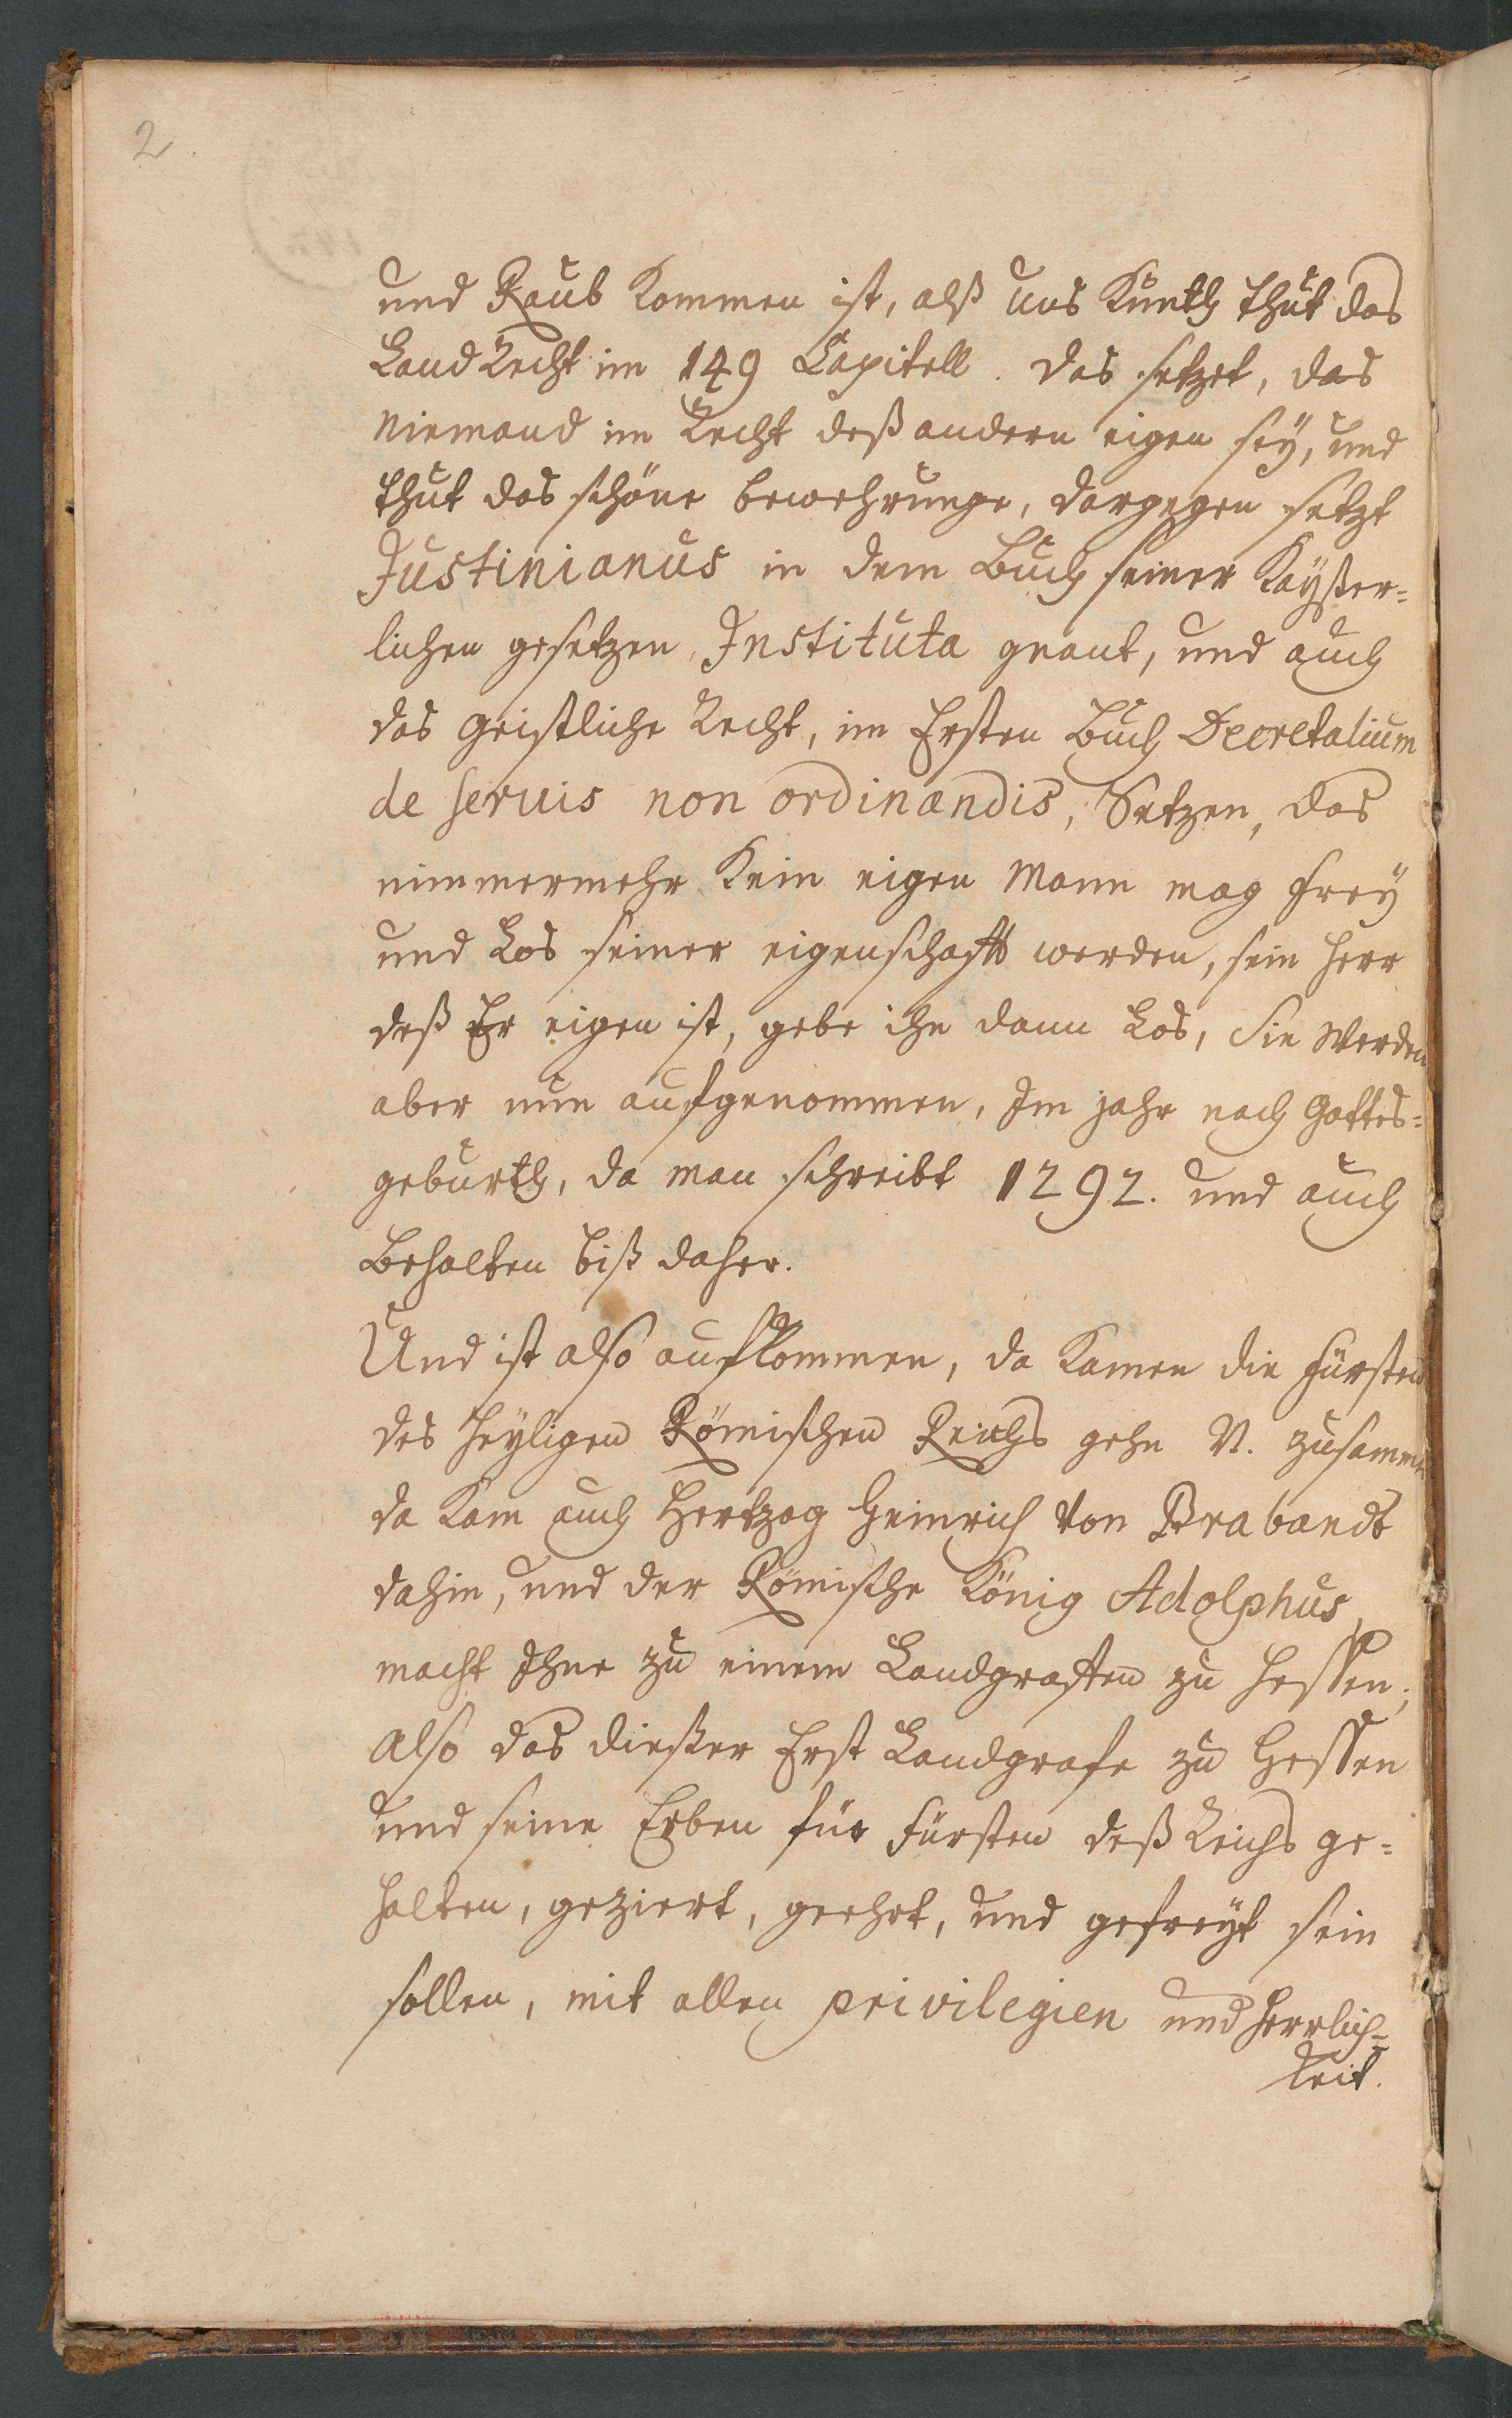 2.
und Raub kommen ist, alß uns Kunth thut das
LandRecht im 149 Capitell. das setzet, das
Niemand im Recht deß andern eigen sey, und
thut das schöne bewehrunge, dargegen setzt
Justinianus in dem Buch seiner Kayßer=
lichen gesetzen Instituta gnant, und auch
das Geistliche Recht, im Ersten Buch Decretalium
de servis non ordinandis, Setzen, das
nimmermehr Kein eigen Mann mag frey
und Los seiner eigenschafft werden, sein Herr
deß Er eigen ist, gebe ihn dann Los, Sie Werden
aber nun aufgenommen, Im jahr nach Gottes=
geburth, da man schreibt 1292. und auch
Behalten biß daher.
Und ist also aufkommen, da Kamen die Fürsten
des Heyligen Römischen Reichs gehn N. zusammen
da Kam auch Hertzog Heinrich von Brabandt
dahin, und der Römische König Adolphus,
macht Ihne zu einem Landgraffen zu Hessen,
Also das dießer Erst Landgrafe zu Hessen
und seine Erben für Fürsten deß Reichs ge=
halten, geziert, geehrt, und gefreyt sein
sollen, mit allen privilegien und Herrlich=
keit.